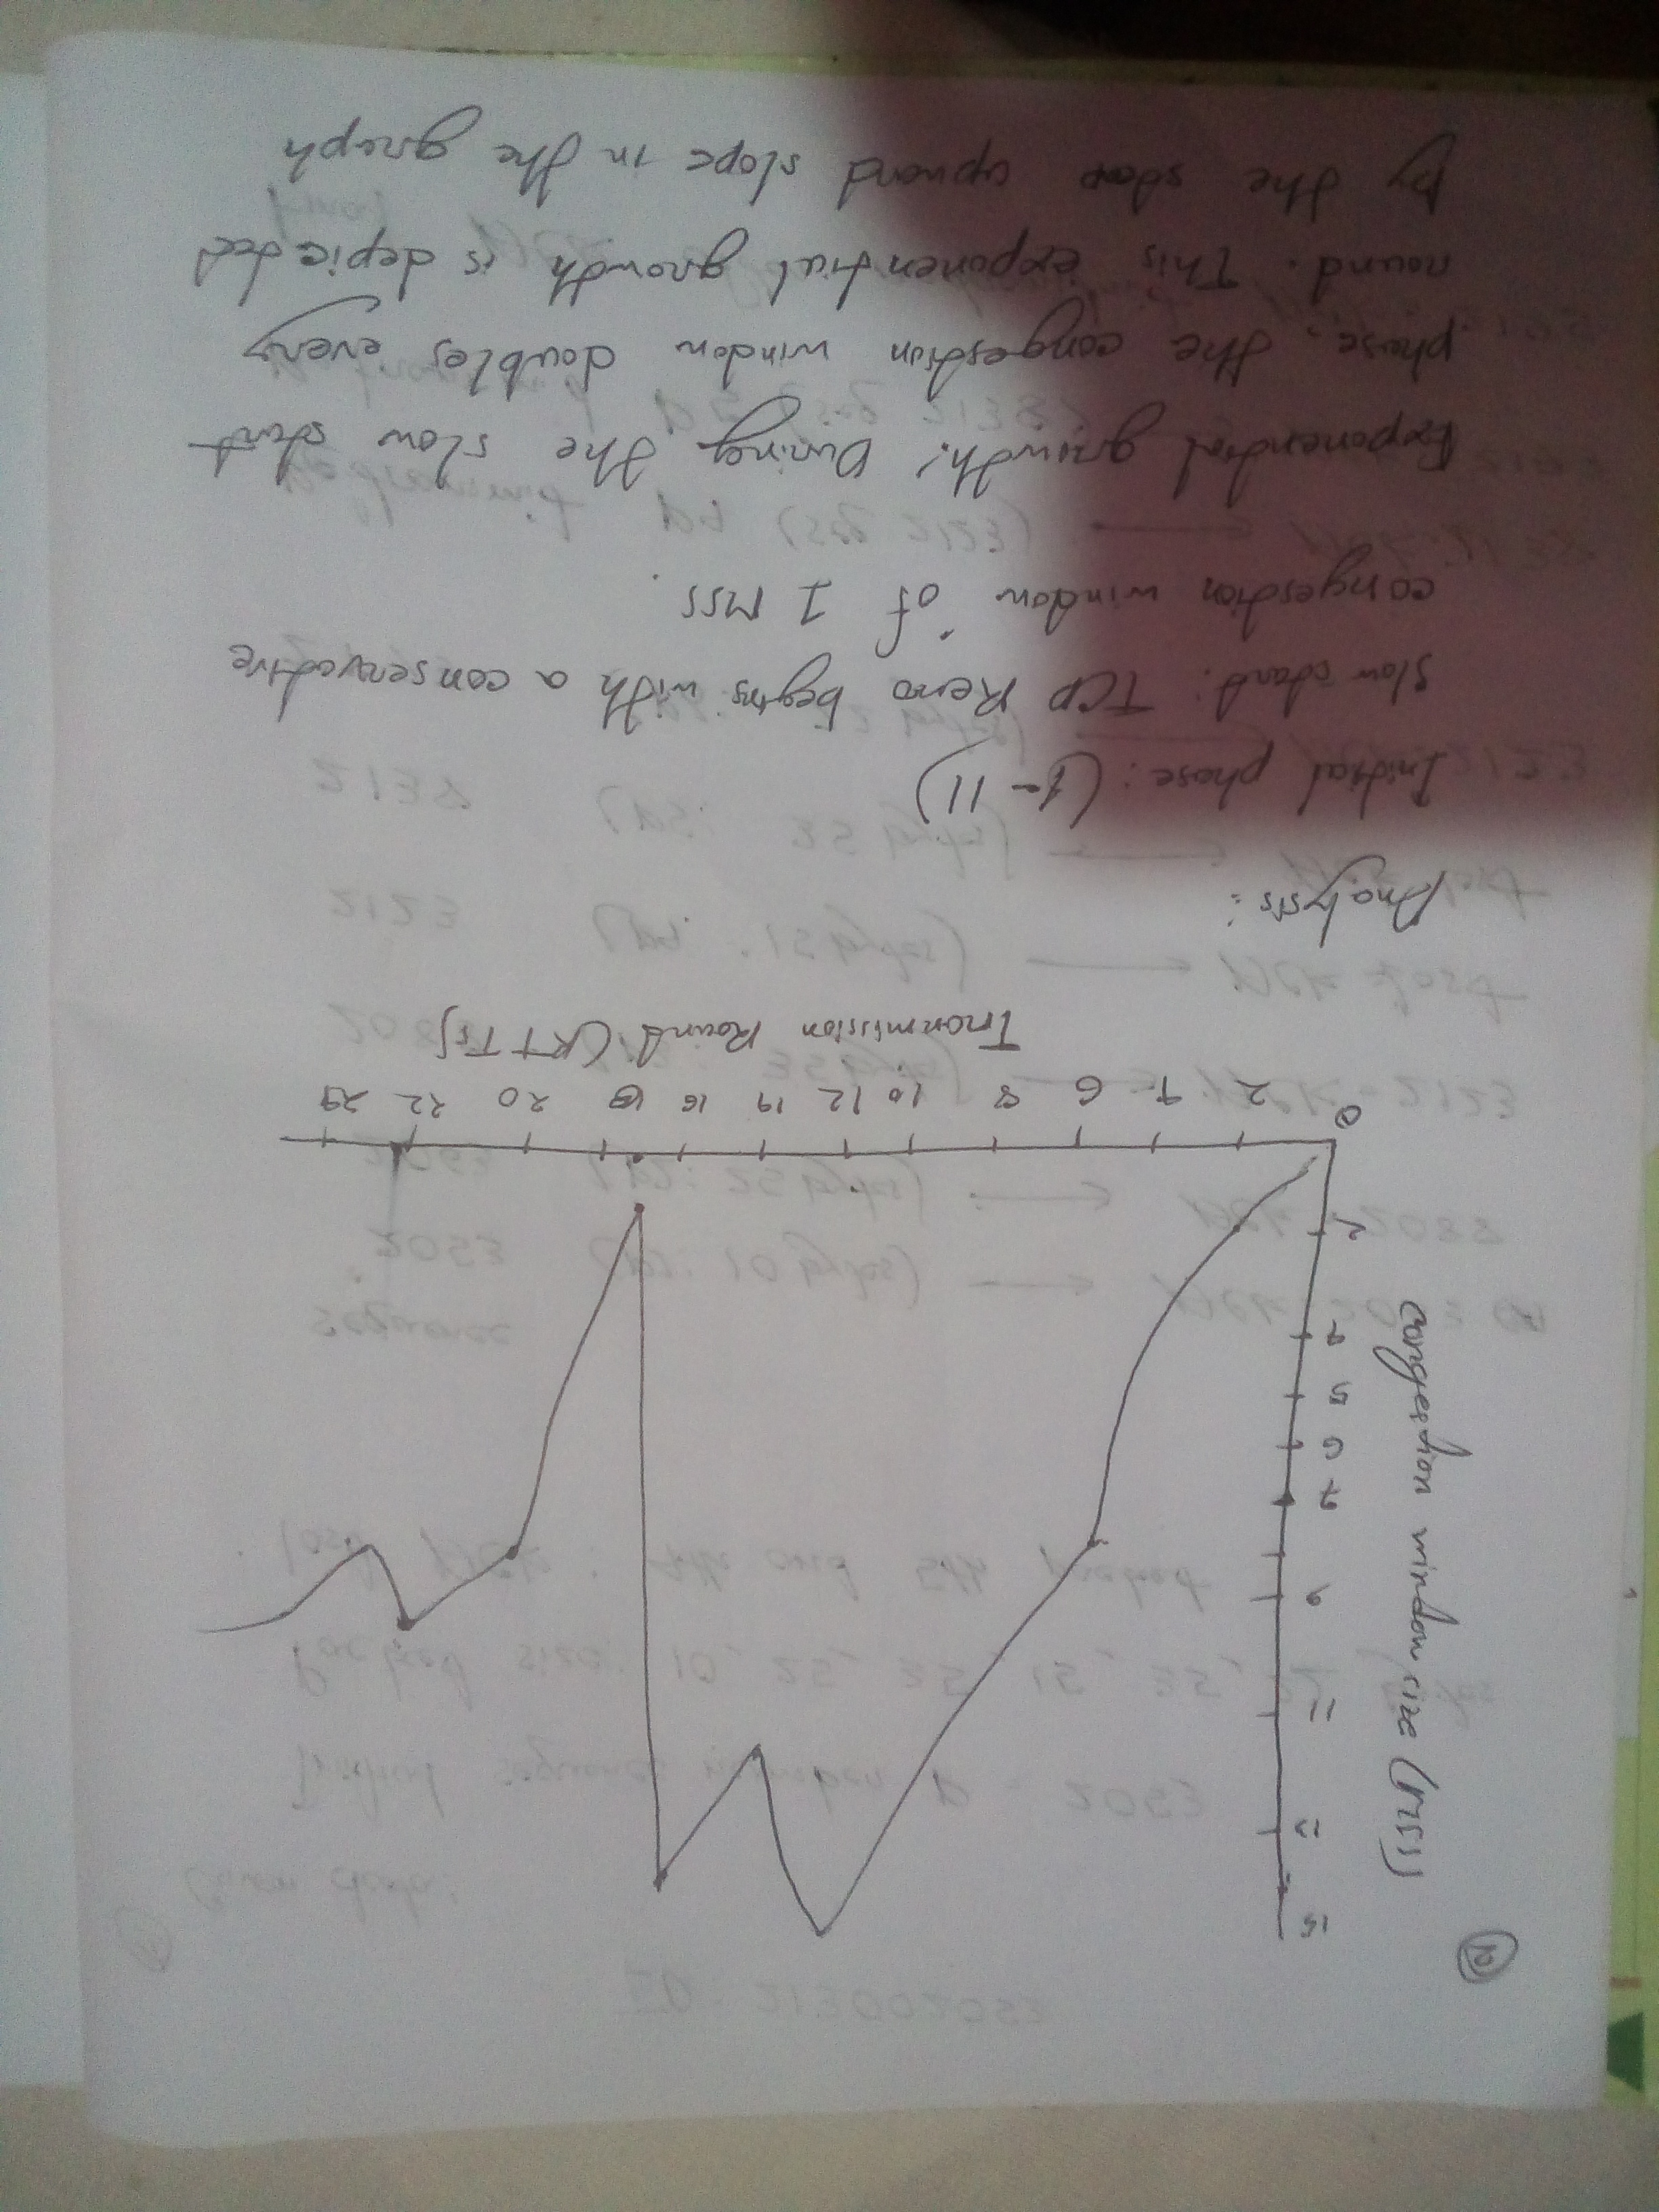 2
congestion window size (MSS)
15
13
11
9
7
6
5
4
2
0 2 4 6 8 10 12 14 16 18 20 22 24
Tranmission Round (RTTs)
Analysis:
Initial phase: (1-11)
Slow start: TCP Reno begins with a conservative
congestion window of 1 MSS.
Exponential growth: During the slow start
phase, the congestion window doubles every
round. This exponential growth is depicted
by the upward slope in the graph